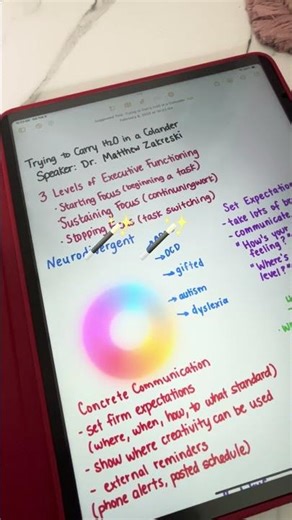 Trying to Carry H2O in a Colander
Speaker: Dr. Matthew Zakreski
3 Levels of Executive Functioning
- Starting Focus (beginning a task)
- Sustaining Focus (continuing work)
- Stopping (task switching)
Neurodivergent
→ OCD
→ gifted
→ autism
→ dyslexia
Set Expectat
- take lots of b
- communicate
"How's your
feeling?"
"Where's
level?"
Concrete Communication
- set firm expectations
(where, when, how, to what standard)
- show where creativity can be used
- external reminders
(phone alerts, posted schedule)